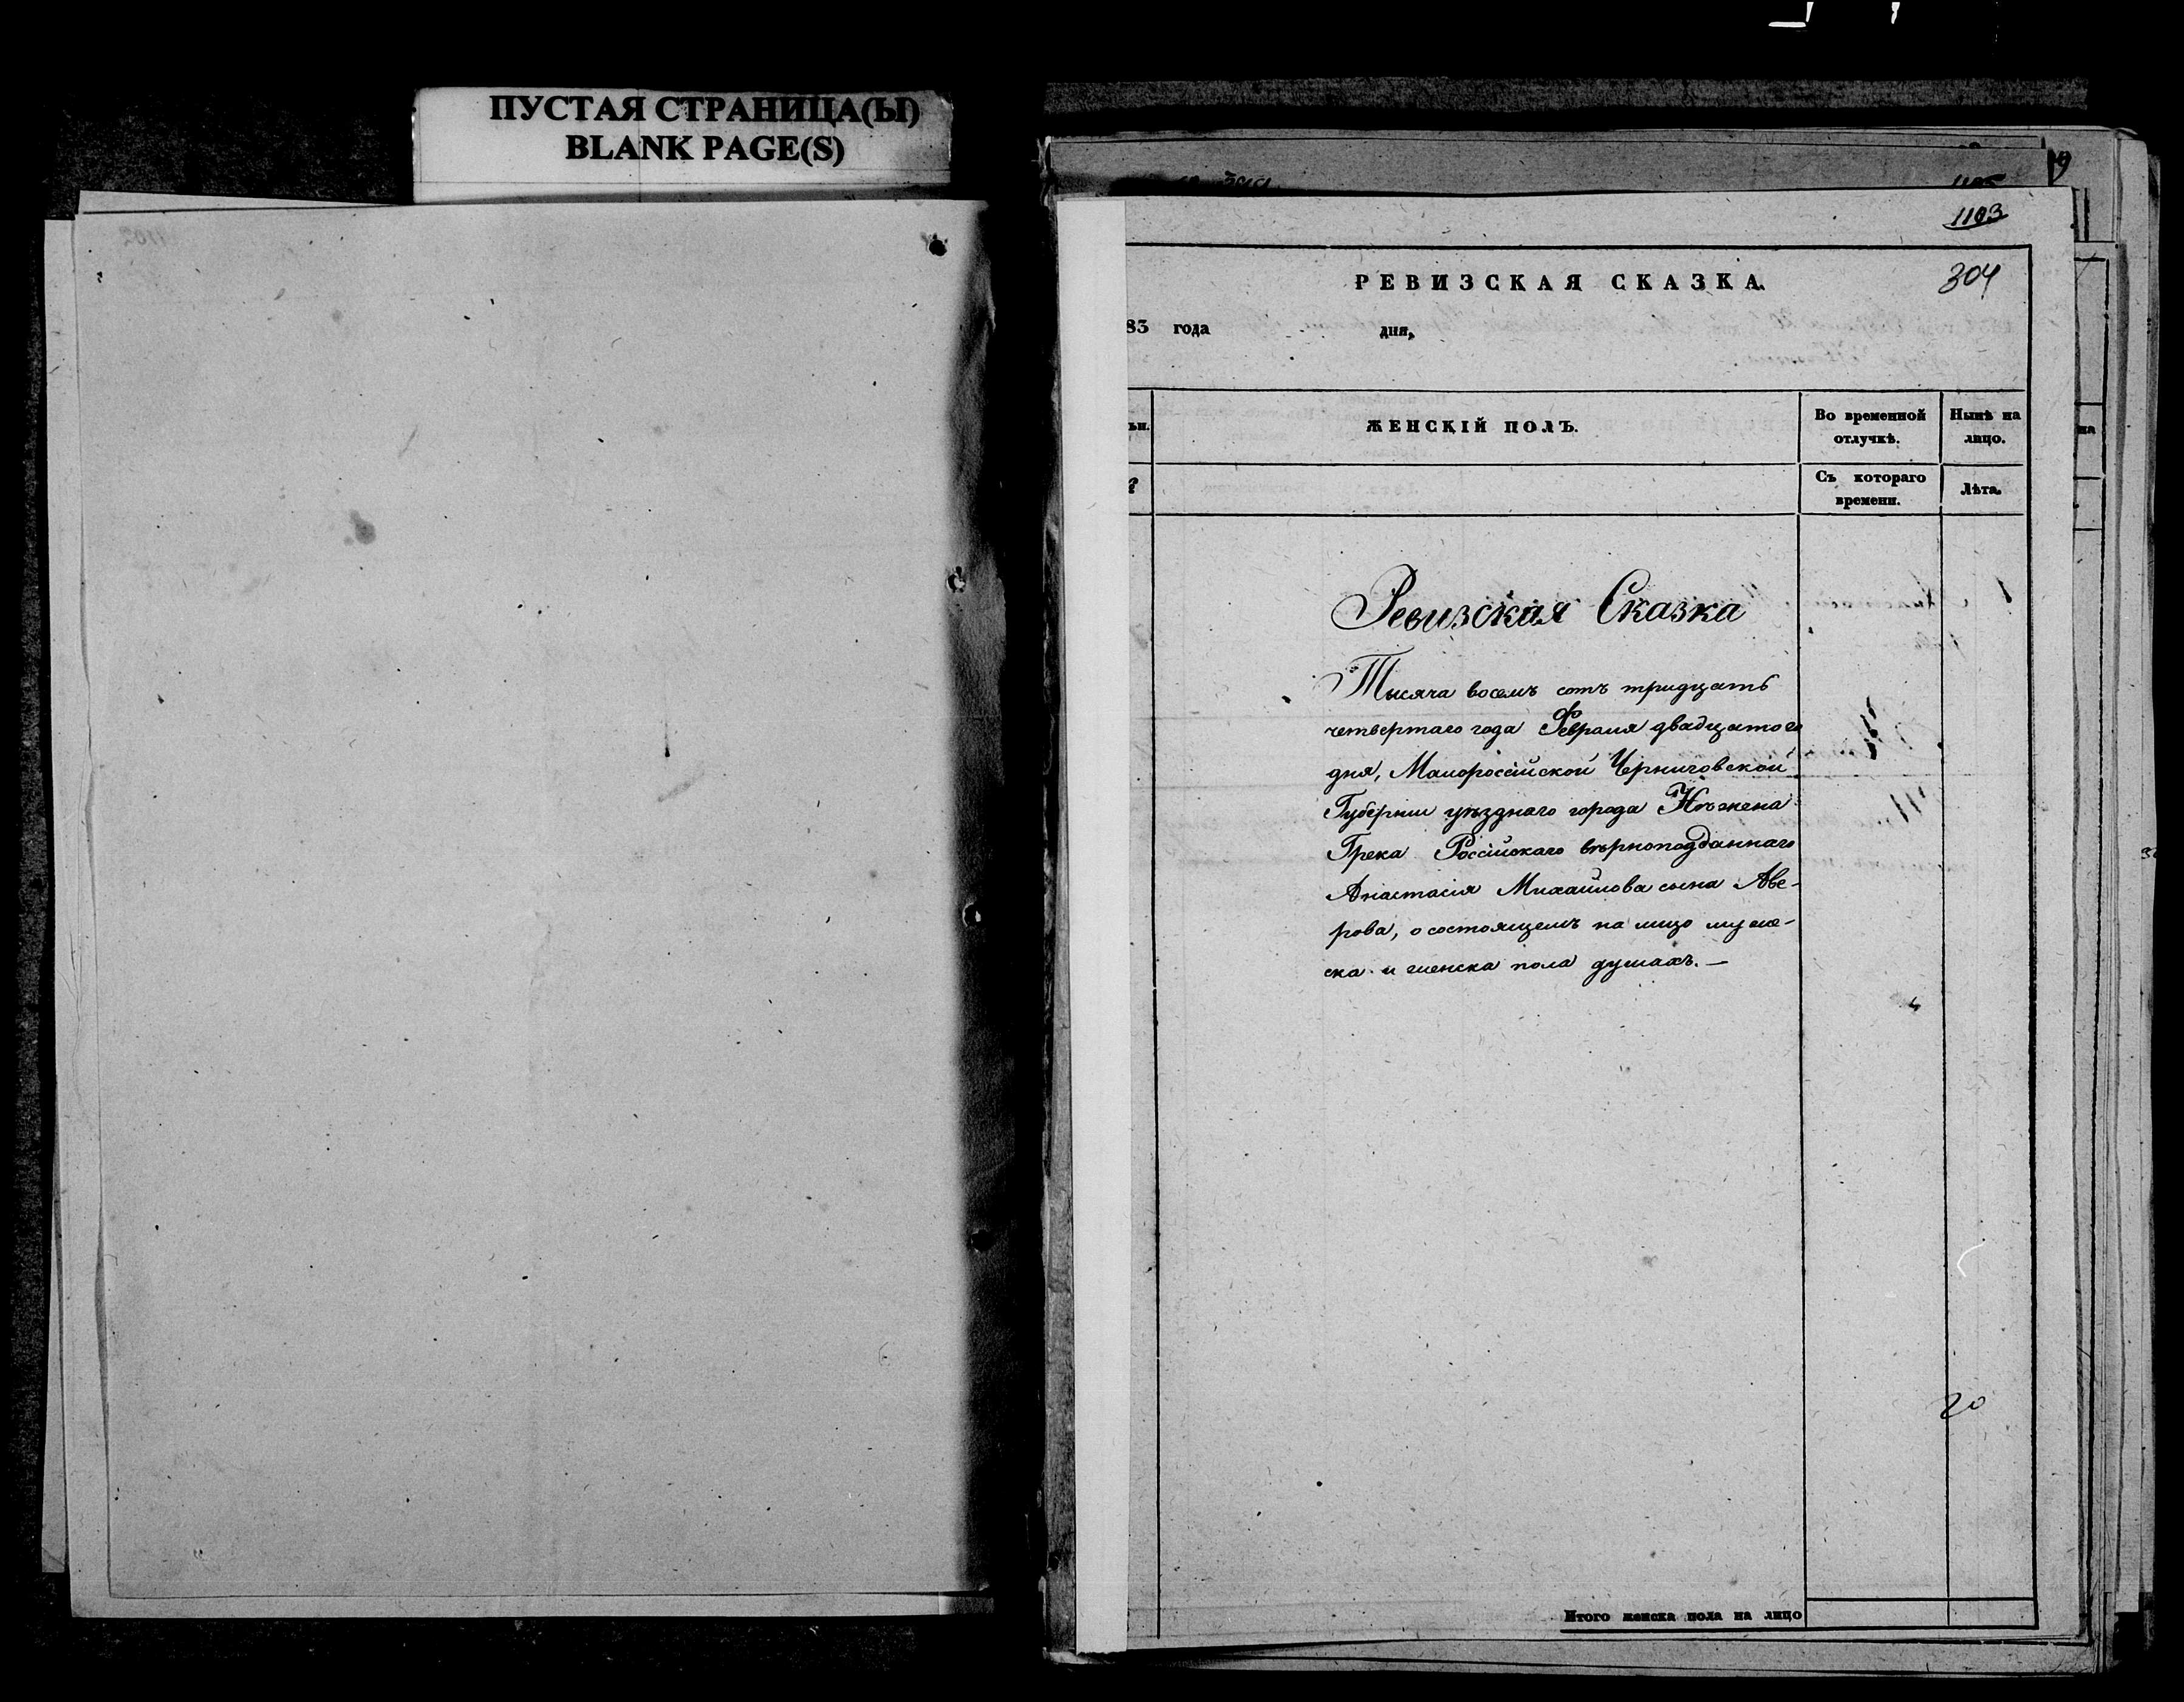 ПУСТАЯ СТРАНИЦА(Ы)
BLANK PAGE(S)
1103
304
РЕВИЗСКАЯ СКАЗКА.
83 года дня,
ЖЕНСКІЙ ПОЛЪ.
Во временной отлучкѣ.
Нынѣ на лицо.
Съ котораго времени.
Лѣта.
Ревизская Сказка
Тысяча восемъ сотъ тридцать
четвертаго года Февраля двадцатого
дня, Малороссійской Черниговской
Губерніи уѣзднаго города Нѣжена
Грека Россійскаго вѣрноподданнаго
Анастасія Михайлова сына Аве-
рова, о состоящемъ на лицо муже-
ска и женска пола душахъ. —
20
Итого женска пола на лицо